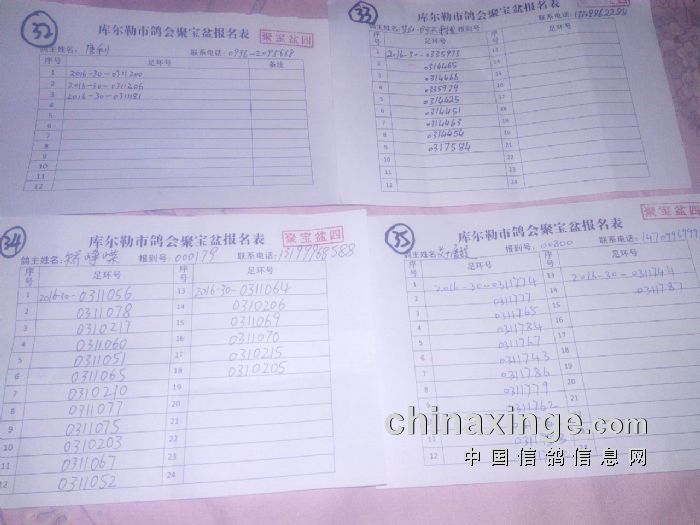 32
库尔勒市鸽会聚宝盆报名表
聚宝盆四
鸽主姓名: 唐利 联系电话:
序号 足环号 备注
1 2016-30-0311200
2 2016-30-0311206
3 2016-30-0311181
4
5
6
7
8
9
10
11
12
33
库尔勒市鸽会聚宝盆报名表
聚宝盆四
鸽主姓名: 报到号: 联系电话:
序号 足环号 序号 足环号
1 2016-30-0335973
0314465
0314466
4 0335979
5 0314425
6 0314451
7 0314463
8 0314454
9 0317584
10
11
12
34
库尔勒市鸽会聚宝盆报名表
聚宝盆四
鸽主姓名: 报到号: 000179 联系电话: 13199968588
序号 足环号 序号 足环号
1 2016-30-0311056 13 2016-30-0311064
2 0311078 14 0310206
3 0310217 15 0311069
4 0311060 16 0311070
5 0311051 17 0310215
6 0311065 18 0310205
7 0310210 19
8 0311077 20
9 0311075 21
10 0310203 22
11 0311067 23
12 0311052 24
35
库尔勒市鸽会聚宝盆报名表
聚宝盆四
鸽主姓名: 报到号: 00800 联系电话:
序号 足环号 序号 足环号
1 2016-30-0311774 13 2016-30-0311744
2 0311777 14 0311787
3 0311765 15
4 0311784 16
5 0311767 17
6 0311743 18
7 0311786
8 0311779
9 0311762
chinaxinge.com
中国信鸽信息网